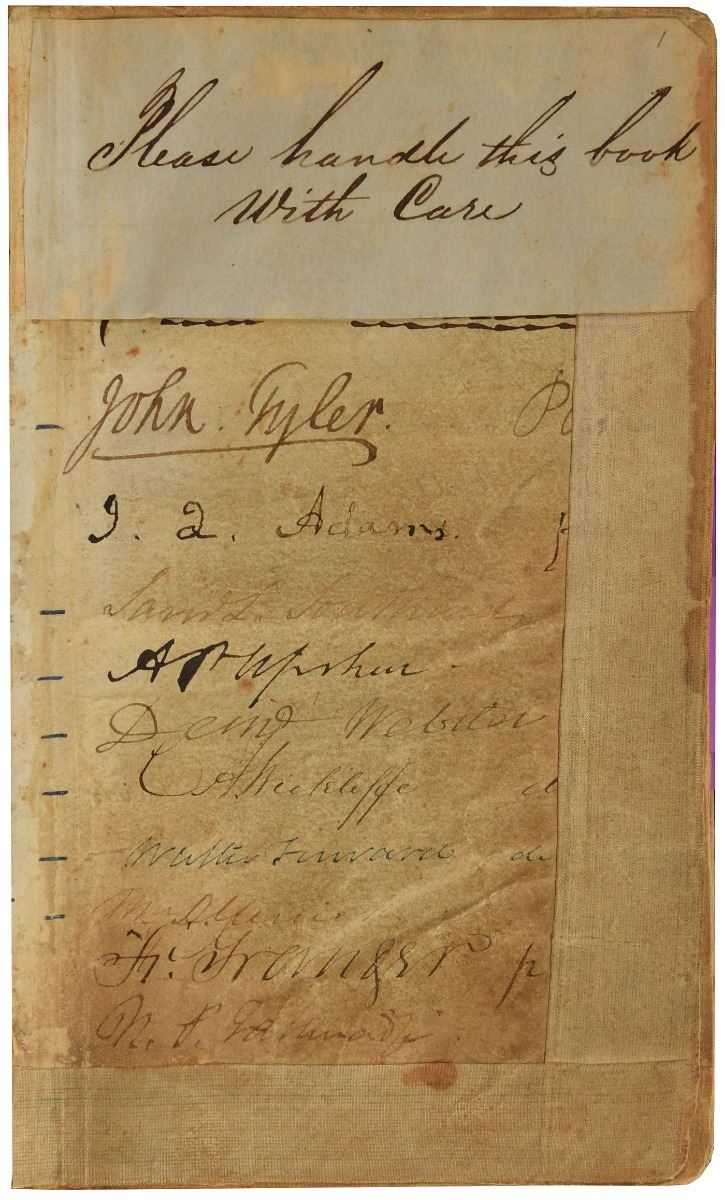 Please handle this book
With Care
John Tyler. P
J. Q. Adams. p
Saml L. Southard
A P Upshur
Danl Webster
C A. Wickliffe d
Walter Forward do
Fr. Granger p
N. P. Tallmadge